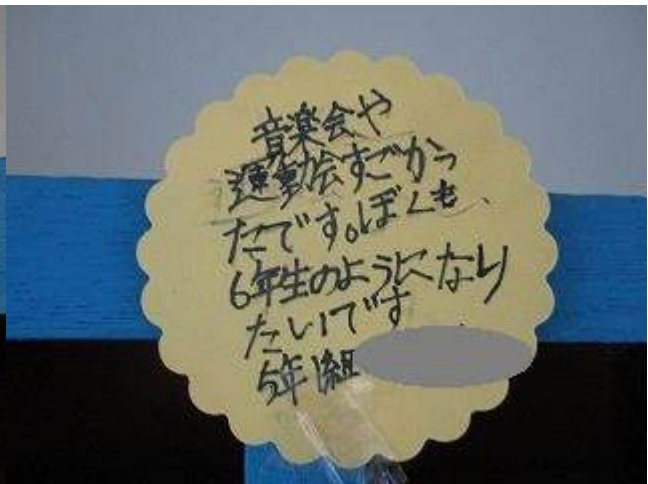 音楽会や
運動会すごかっ
たです。ぼくも、
6年生のようになり
たいです
5年1組